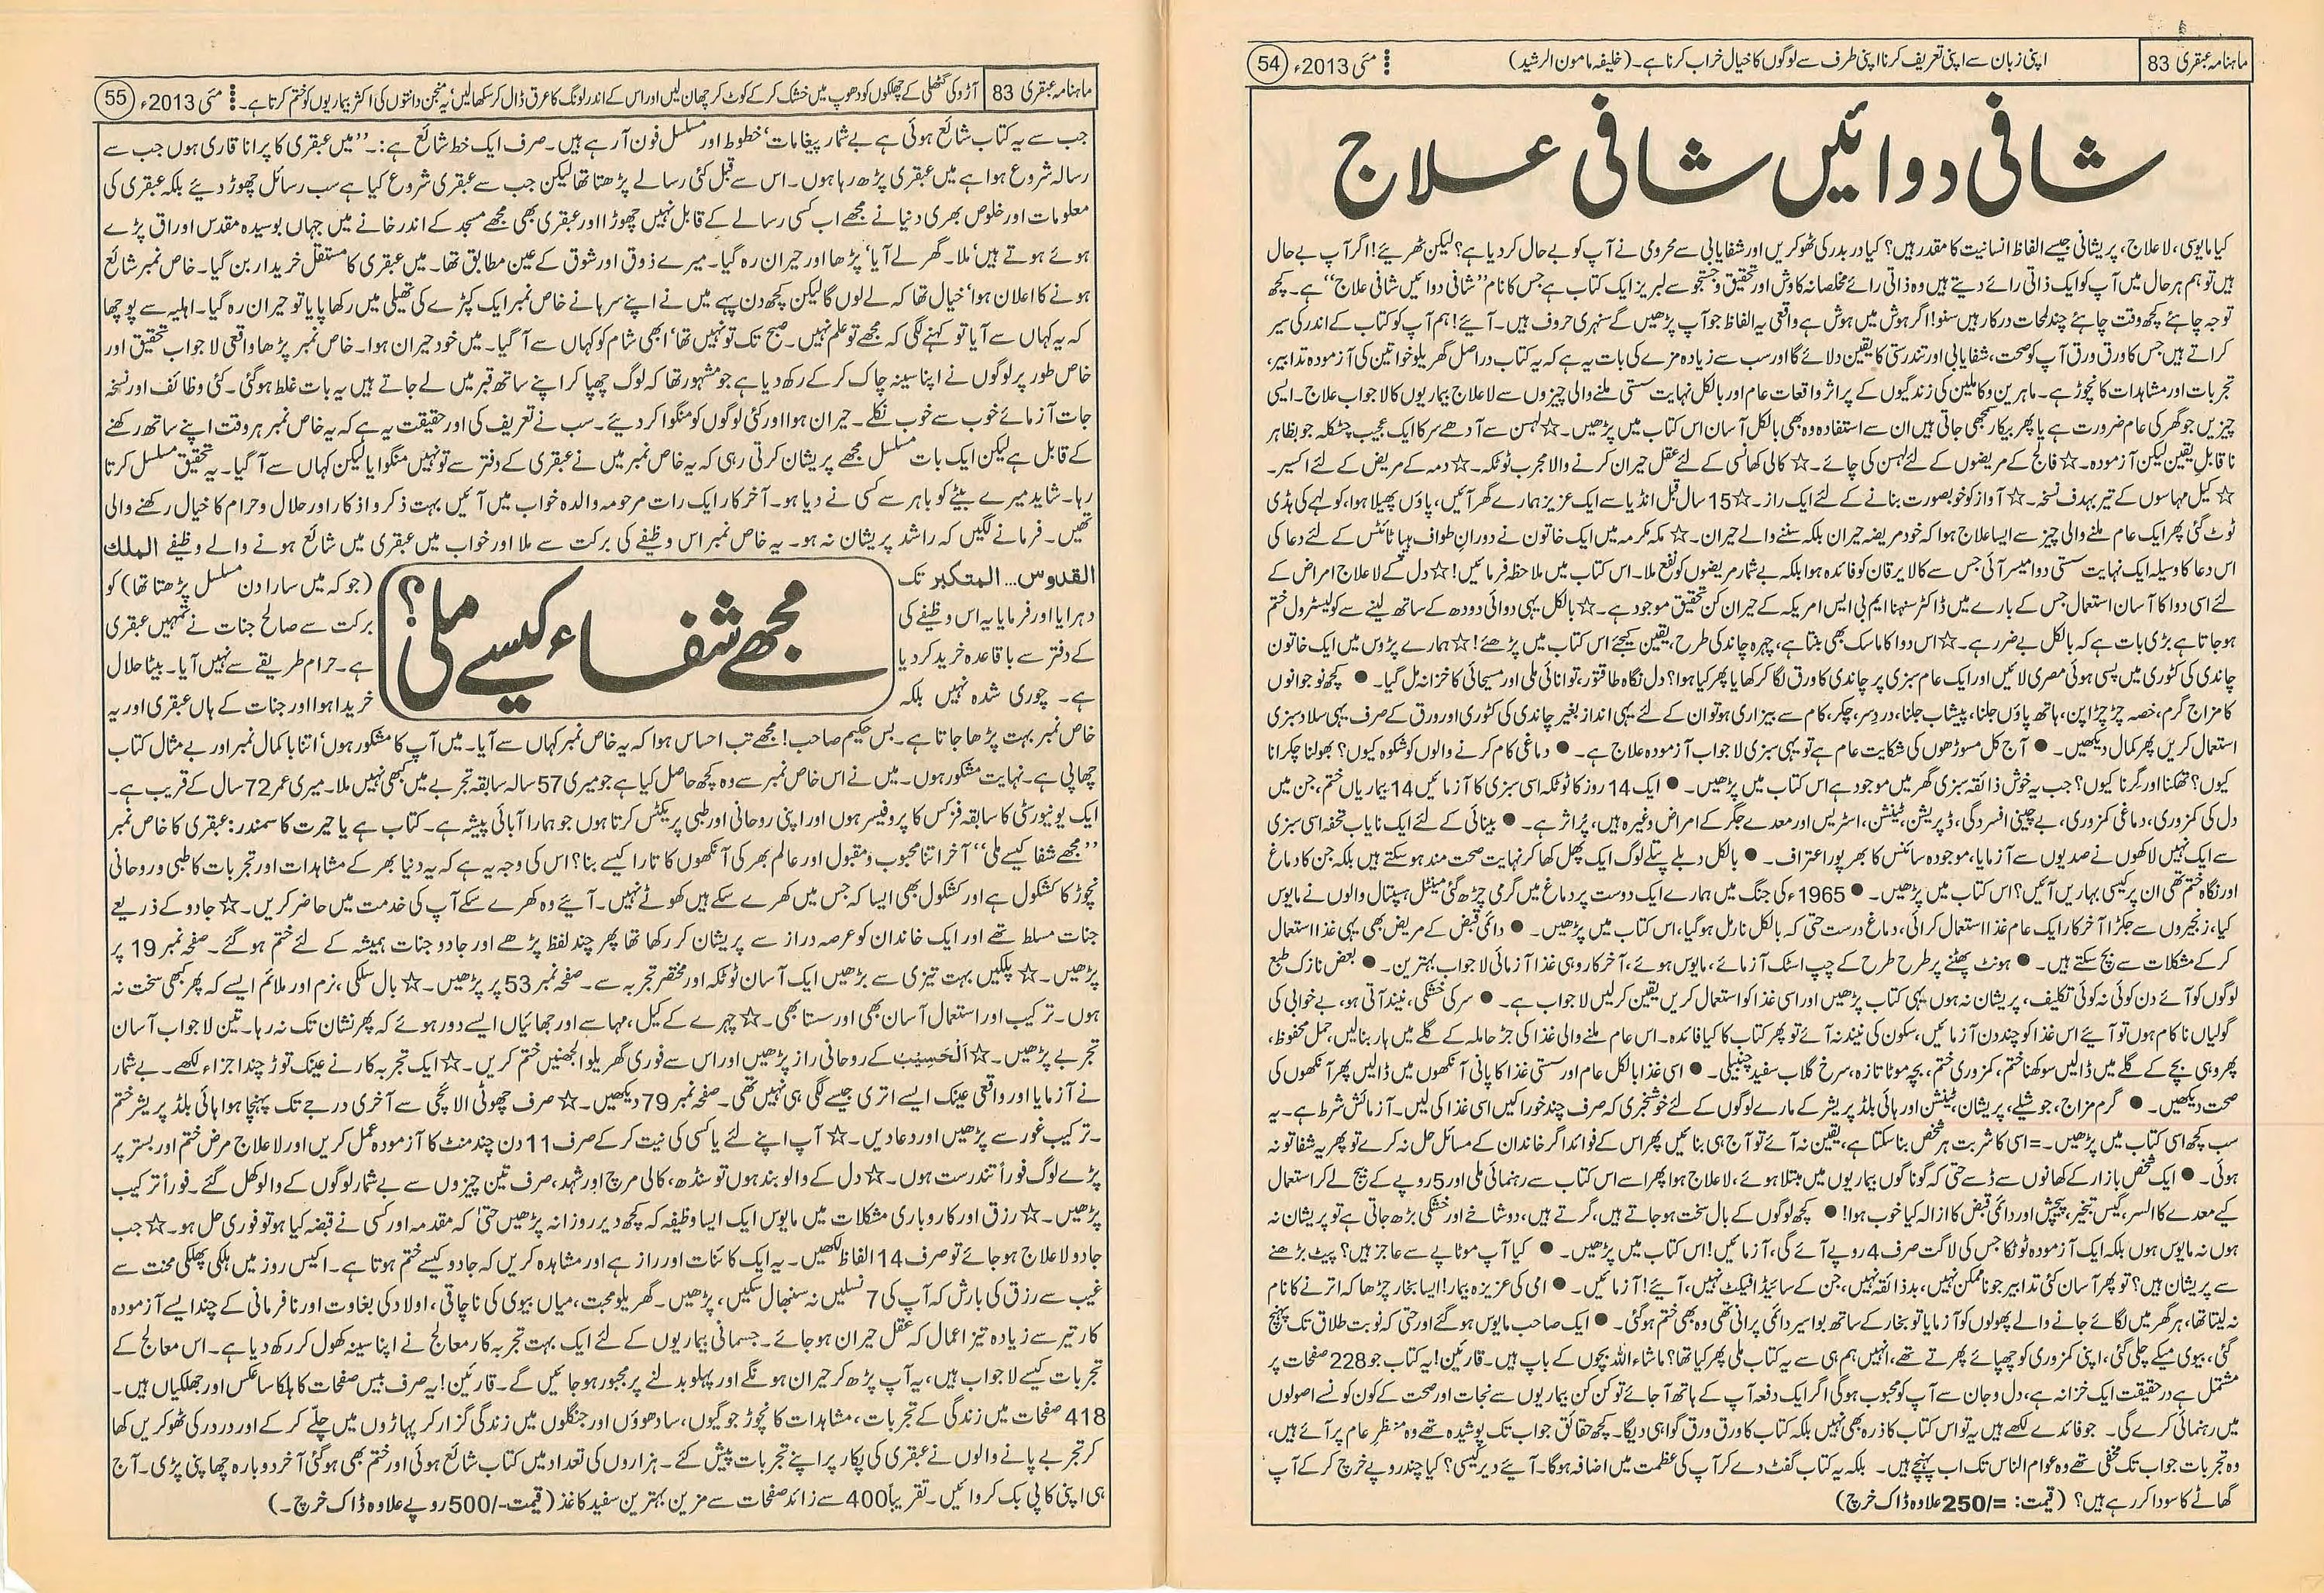 ماہنامہ عبقری 83
اپنی زبان سے اپنی تعریف کرنا اپنی طرف سے لوگوں کا خیال خراب کرنا ہے۔ (خلیفہ مامون الرشید)
مئی 2013ء
54
شافی دوائیں شافی علاج
کیا مایوسی، لاعلاج، پریشانی جیسے الفاظ انسانیت کا مقدر ہیں؟ کیا دربدر کی ٹھوکریں اور شفایابی سے محرومی نے آپ کو بے حال کر دیا ہے؟ لیکن ٹھہریے! اگر آپ بے حال
ہیں تو ہم ہر حال میں آپ کو ایک ذاتی رائے دیتے ہیں وہ ذاتی رائے مخلصانہ کاوش اور تحقیق و جستجو سے لبریز ایک کتاب ہے جس کا نام ’’شافی دوائیں شافی علاج‘‘ ہے۔ کچھ
توجہ چاہئے کچھ وقت چاہئے چند لمحات درکار ہیں سنو! اگر ہوش میں ہوش ہے واقعی یہ الفاظ جو آپ پڑھیں گے سنہری حروف ہیں۔ آیئے! ہم آپ کو کتاب کے اندر کی سیر
کراتے ہیں جس کا ورق ورق آپ کو صحت، شفایابی اور تندرستی کا یقین دلائے گا اور سب سے زیادہ مزے کی بات یہ ہے کہ یہ کتاب دراصل گھریلو خواتین کی آزمودہ تدابیر،
تجربات اور مشاہدات کا نچوڑ ہے۔ ماہرین و کاملین کی زندگیوں کے پراثر واقعات عام اور بالکل نہایت سستی ملنے والی چیزوں سے لاعلاج بیماریوں کا لاجواب علاج۔ ایسی
چیزیں جو گھر کی عام ضرورت ہے یا پھر بیکار سمجھی جاتی ہیں ان سے استفادہ وہ بھی بالکل آسان اس کتاب میں پڑھیں۔ ☆لہسن سے آدھے سر کا ایک عجیب چٹکلہ جو بظاہر
ناقابل یقین لیکن آزمودہ۔ ☆ فالج کے مریضوں کے لئے لہسن کی چائے۔ ☆ کالی کھانسی کے لئے عقل حیران کرنے والا مجرب ٹوٹکہ۔ ☆ دمہ کے مریض کے لئے اکسیر۔
☆ کیل مہاسوں کے تیر بہدف نسخہ۔ ☆ آواز کو خوبصورت بنانے کے لئے ایک راز۔ ☆15 سال قبل انڈیا سے ایک عزیز ہمارے گھر آئیں، پاؤں پھیلا ہوا، کولہے کی ہڈی
ٹوٹ گئی پھر ایک عام ملنے والی چیز سے ایسا علاج ہوا کہ خود مریضہ حیران بلکہ سننے والے حیران۔ ☆ مکہ مکرمہ میں ایک خاتون نے دوران طواف ہیپاٹائٹس کے لئے دعا کی
اس دعا کا وسیلہ ایک نہایت سستی دوا میسر آئی جس سے کالا یرقان کو فائدہ ہوا بلکہ بے شمار مریضوں کو نفع ملا۔ اس کتاب میں ملاحظہ فرمائیں! ☆دل کے لاعلاج امراض کے
لئے اسی دوا کا آسان استعمال جس کے بارے میں ڈاکٹر سنہنا ایم بی ایس امریکہ کے حیران کن تحقیق موجود ہے۔ ☆ بالکل یہی دوائی دودھ کے ساتھ لینے سے کولیسٹرول ختم
ہو جاتا ہے بڑی بات ہے کہ بالکل بے ضرر ہے۔ ☆اس دوا کا ماسک بھی بنتا ہے، چہرہ چاند کی طرح، یقین کیجئے اس کتاب میں پڑھئے! ☆ہمارے پڑوس میں ایک خاتون
چاندی کی کٹوری میں پسی ہوئی مصری لائیں اور ایک عام سبزی پر چاندی کا ورق لگا کر کھایا پھر کیا ہوا؟ دل نگاہ طاقتور، توانائی ملی اور مسیحائی کا خزانہ مل گیا۔ ● کچھ نوجوانوں
کا مزاج گرم، غصہ چڑچڑا پن، ہاتھ پاؤں جلنا، پیشاب جلنا، درد سر، چکر، کام سے بیزاری ہو تو ان کے لئے یہی انداز بغیر چاندی کی کٹوری اور ورق کے صرف یہی سلاد سبزی
استعمال کریں پھر کمال دیکھیں۔ ● آج کل مسوڑھوں کی شکایت عام ہے تو یہی سبزی لاجواب آزمودہ علاج ہے۔ ● دماغی کام کرنے والوں کو شکوہ کیوں؟ بھولنا چکرانا
کیوں؟ تھکنا اور گرنا کیوں؟ جب یہ خوش ذائقہ سبزی گھر میں موجود ہے اس کتاب میں پڑھیں۔ ● ایک 14 روز کا ٹوٹکہ اسی سبزی کا آزمائیں 14 بیماریاں ختم، جن میں
دل کی کمزوری، دماغی کمزوری، بے چینی افسردگی، ڈپریشن، ٹینشن، اسٹریس اور معدے جگر کے امراض وغیرہ ہیں، پُراثر ہے۔ ● بینائی کے لئے ایک نایاب تحفہ اسی سبزی
سے ایک نہیں لاکھوں نے صدیوں سے آزمایا، موجودہ سائنس کا بھرپور اعتراف۔ ● بالکل دبلے پتلے لوگ ایک پھل کھا کر نہایت صحت مند ہو سکتے ہیں بلکہ جن کا دماغ
اور نگاہ ختم تھی ان پر کیسی بہاریں آئیں؟ اس کتاب میں پڑھیں۔ ● 1965ء کی جنگ میں ہمارے ایک دوست پر دماغ میں گرمی چڑھ گئی مینٹل ہسپتال والوں نے مایوس
کیا، زنجیروں سے جکڑا آخر کار ایک عام غذا استعمال کرائی، دماغ درست حتیٰ کہ بالکل نارمل ہو گیا، اس کتاب میں پڑھیں۔ ● دائمی قبض کے مریض بھی یہی غذا استعمال
کر کے مشکلات سے بچ سکتے ہیں۔ ● ہونٹ پھٹنے پر طرح طرح کے چپ اسٹک آزمائے، مایوس ہوئے، آخر کار وہی غذا آزمائی لاجواب بہترین۔ ● بعض نازک طبع
لوگوں کو آئے دن کوئی نہ کوئی تکلیف، پریشان نہ ہوں یہی کتاب پڑھیں اور اسی غذا کو استعمال کریں یقین کر لیں لاجواب ہے۔ ● سر کی خشکی، نیند آتی ہو، بے خوابی کی
گولیاں ناکام ہوں تو آیئے اس غذا کو چند دن آزمائیں، سکون کی نیند نہ آئے تو پھر کتاب کا کیا فائدہ۔ اس عام ملنے والی غذا کی جڑ حاملہ کے گلے میں ہار بنا لیں، حمل محفوظ،
پھر وہی بچے کے گلے میں ڈالیں سوکھنا ختم، کمزوری ختم، بچہ موٹا تازہ، سرخ گلاب سفید چنبیلی۔ ● اسی غذا بالکل عام اور سستی غذا کا پانی آنکھوں میں ڈالیں پھر آنکھوں کی
صحت دیکھیں۔ ● گرم مزاج، جوشیلے، پریشان، ٹینشن اور ہائی بلڈ پریشر کے مارے لوگوں کے لئے خوشخبری کہ صرف چند خوراکیں اسی غذا کی لیں۔ آزمائش شرط ہے۔ یہ
سب کچھ اسی کتاب میں پڑھیں۔ = اسی کا شربت ہر شخص بنا سکتا ہے، یقین نہ آئے تو آج ہی بنائیں پھر اس کے فوائد اگر خاندان کے مسائل حل نہ کرے تو پھر یہ شفا تو نہ
ہوئی۔ ● ایک شخص بازار کے کھانوں سے ڈسے حتیٰ کہ گوناگوں بیماریوں میں مبتلا ہوئے، لاعلاج ہوا پھر اسے اس کتاب سے رہنمائی ملی اور 5 روپے کے بیج لے کر استعمال
کیے معدے کا السر، گیس تبخیر، پیچش اور دائمی قبض کا ازالہ کیا خوب ہوا! ● کچھ لوگوں کے بال سخت ہو جاتے ہیں، گرتے ہیں، دوشاخے اور خشکی بڑھ جاتی ہے تو پریشان نہ
ہوں نہ مایوس ہوں بلکہ ایک آزمودہ ٹوٹکا جس کی لاگت صرف 4 روپے آئے گی، آزمائیں! اس کتاب میں پڑھیں۔ ● کیا آپ موٹاپے سے عاجز ہیں؟ پیٹ بڑھنے
سے پریشان ہیں؟ تو پھر آسان کئی تدابیر جو ناممکن نہیں، بدذائقہ نہیں، جن کے سائیڈ افیکٹ نہیں، آیئے! آزمائیں۔ ● امی کی عزیزہ بیمار! ایسا بخار چڑھا کہ اترنے کا نام
نہ لیتا تھا، ہر گھر میں لگائے جانے والے پھولوں کو آزمایا تو بخار کے ساتھ بواسیر دائمی پرانی تھی وہ بھی ختم ہو گئی۔ ● ایک صاحب مایوس ہو گئے اور حتیٰ کہ نوبت طلاق تک پہنچ
گئی، بیوی میکے چلی گئی، اپنی کمزوری کو چھپائے پھرتے تھے، انہیں ہم ہی سے یہ کتاب ملی پھر کیا تھا؟ ماشاءاللہ بچوں کے باپ ہیں۔ قارئین! یہ کتاب جو 228 صفحات پر
مشتمل ہے در حقیقت ایک خزانہ ہے، دل و جان سے آپ کو محبوب ہو گی اگر ایک دفعہ آپ کے ہاتھ آ جائے تو کن کن بیماریوں سے نجات اور صحت کے کون کونسے اصولوں
میں رہنمائی کرے گی۔ جو فائدے لکھے ہیں یہ تو اس کتاب کا ذرہ بھی نہیں بلکہ کتاب کا ورق ورق گواہی دیگا۔ کچھ حقائق جو اب تک پوشیدہ تھے وہ منظر عام پر آئے ہیں،
وہ تجربات جو اب تک مخفی تھے وہ عوام الناس تک اب پہنچے ہیں۔ بلکہ یہ کتاب گفٹ دے کر آپ کی عظمت میں اضافہ ہوگا۔ آیئے دیر کیسی؟ کیا چند روپے خرچ کر کے آپ
گھاٹے کا سودا کر رہے ہیں؟ (قیمت: =/250 علاوہ ڈاک خرچ)
ماہنامہ عبقری 83
آڑو کی گٹھلی کے چھلکوں کو دھوپ میں خشک کر کے کوٹ کر چھان لیں اور اس کے اندر لونگ کا عرق ڈال کر سکھا لیں‘ یہ منجن دانتوں کی اکثر بیماریوں کو ختم کرتا ہے۔
مئی 2013ء
55
جب سے یہ کتاب شائع ہوئی ہے بے شمار پیغامات‘ خطوط اور مسلسل فون آ رہے ہیں۔ صرف ایک خط شائع ہے:۔ ’’میں عبقری کا پرانا قاری ہوں جب سے
رسالہ شروع ہوا ہے میں عبقری پڑھ رہا ہوں۔ اس سے قبل کئی رسالے پڑھتا تھا لیکن جب سے عبقری شروع کیا ہے سب رسائل چھوڑ دیئے بلکہ عبقری کی
معلومات اور خلوص بھری دنیا نے مجھے اب کسی رسالے کے قابل نہیں چھوڑا اور عبقری بھی مجھے مسجد کے اندر خانے میں جہاں بوسیدہ مقدس اوراق پڑے
ہوئے ہوتے ہیں‘ ملا۔ گھر لے آیا‘ پڑھا اور حیران رہ گیا۔ میرے ذوق اور شوق کے عین مطابق تھا۔ میں عبقری کا مستقل خریدار بن گیا۔ خاص نمبر شائع
ہونے کا اعلان ہوا‘ خیال تھا کہ لے لوں گا لیکن کچھ دن پہے میں نے اپنے سرہانے خاص نمبر ایک کپڑے کی تھیلی میں رکھا پایا تو حیران رہ گیا۔ اہلیہ سے پوچھا
کہ یہ کہاں سے آیا تو کہنے لگی کہ مجھے تو علم نہیں۔ صبح تک تو نہیں تھا‘ ابھی شام کو کہاں سے آ گیا۔ میں خود حیران ہوا۔ خاص نمبر پڑھا واقعی لاجواب تحقیق اور
خاص طور پر لوگوں نے اپنا سینہ چاک کر کے رکھ دیا ہے جو مشہور تھا کہ لوگ چھپا کر اپنے ساتھ قبر میں لے جاتے ہیں یہ بات غلط ہو گئی۔ کئی وظائف اور نسخہ
جات آزمائے خوب سے خوب نکلے۔ حیران ہوا اور کئی لوگوں کو منگوا کر دیئے۔ سب نے تعریف کی اور حقیقت یہ ہے کہ یہ خاص نمبر ہر وقت اپنے ساتھ رکھنے
کے قابل ہے لیکن ایک بات مسلسل مجھے پریشان کرتی رہی کہ یہ خاص نمبر میں نے عبقری کے دفتر سے تو نہیں منگوایا لیکن کہاں سے آ گیا۔ یہ تحقیق مسلسل کرتا
رہا۔ شاید میرے بیٹے کو باہر سے کسی نے دیا ہو۔ آخر کار ایک رات مرحومہ والدہ خواب میں آئیں بہت ذکر و اذکار اور حلال و حرام کا خیال رکھنے والی
تھیں۔ فرمانے لگیں کہ راشد پریشان نہ ہو۔ یہ خاص نمبر اس وظیفے کی برکت سے ملا اور خواب میں عبقری میں شائع ہونے والے وظیفے الملک
القدوس... المتکبر تک (جو کہ میں سارا دن مسلسل پڑھتا تھا) کو
دہرایا اور فرمایا یہ اس وظیفے کی برکت سے صالح جنات نے تمہیں عبقری
مجھے شفاء کیسے ملی؟
کے دفتر سے باقاعدہ خرید کر دیا ہے۔ حرام طریقے سے نہیں آیا۔ بیٹا حلال
ہے۔ چوری شدہ نہیں بلکہ خریدا ہوا اور جنات کے ہاں عبقری اور یہ
خاص نمبر بہت پڑھا جاتا ہے۔ بس حکیم صاحب! مجھے تب احساس ہوا کہ یہ خاص نمبر کہاں سے آیا۔ میں آپ کا مشکور ہوں‘ اتنا باکمال نمبر اور بے مثال کتاب
چھاپی ہے۔ نہایت مشکور ہوں۔ میں نے اس خاص نمبر سے وہ کچھ حاصل کیا ہے جو میری 57 سالہ سابقہ تجربے میں کبھی نہیں ملا۔ میری عمر 72 سال کے قریب ہے۔
ایک یونیورسٹی کا سابقہ فزکس کا پروفیسر ہوں اور اپنی روحانی اور طبی پریکٹس کرتا ہوں جو ہمارا آبائی پیشہ ہے۔ کتاب ہے یا حیرت کا سمندر: عبقری کا خاص نمبر
’’مجھے شفا کیسے ملی‘‘ آخر اتنا محبوب و مقبول اور عالم بھر کی آنکھوں کا تارا کیسے بنا؟ اس کی وجہ یہ ہے کہ یہ دنیا بھر کے مشاہدات اور تجربات کا طبی و روحانی
نچوڑ کا کشکول ہے اور کشکول بھی ایسا کہ جس میں کھرے سکے ہیں کھوٹے نہیں۔ آیئے وہ کھرے سکے آپ کی خدمت میں حاضر کریں۔ ☆ جادو کے ذریعے
جنات مسلط تھے اور ایک خاندان کو عرصہ دراز سے پریشان کر رکھا تھا پھر چند لفظ پڑھے اور جادو جنات ہمیشہ کے لئے ختم ہو گئے۔ صفحہ نمبر 19 پر
پڑھیں۔ ☆ پلکیں بہت تیزی سے بڑھیں ایک آسان ٹوٹکہ اور مختصر تجربہ سے۔ صفحہ نمبر 53 پر پڑھیں۔ ☆ بال سلکی، نرم اور ملائم ایسے کہ پھر کبھی سخت نہ
ہوں۔ ترکیب اور استعمال آسان بھی اور سستا بھی۔ ☆ چہرے کے کیل، مہاسے اور چھائیاں ایسے دور ہوئے کہ پھر نشان تک نہ رہا۔ تین لاجواب آسان
تجربے پڑھیں۔ ☆ اَلْحَسِیْبُ کے روحانی راز پڑھیں اور اس سے فوری گھریلو الجھنیں ختم کریں۔ ☆ ایک تجربہ کار نے عینک توڑ چند اجزاء لکھے۔ بے شمار
نے آزمایا اور واقعی عینک ایسے اتری جیسے لگی ہی نہیں تھی۔ صفحہ نمبر 79 دیکھیں۔ ☆ صرف چھوٹی الائچی سے آخری درجے تک پہنچا ہوا ہائی بلڈ پریشر ختم
۔ترکیب غور سے پڑھیں اور دعا دیں۔ ☆ آپ اپنے لئے یا کسی کی نیت کر کے صرف 11 دن چند منٹ کا آزمودہ عمل کریں اور لاعلاج مرض ختم اور بستر پر
پڑے لوگ فوراً تندرست ہوں۔ ☆ دل کے والو بند ہوں تو سنڈھ، کالی مرچ اور شہد، صرف تین چیزوں سے بے شمار لوگوں کے والو کھل گئے۔ فوراً ترکیب
پڑھیں۔ ☆ رزق اور کاروباری مشکلات میں مایوس ایک ایسا وظیفہ کہ کچھ دیر روزانہ پڑھیں حتیٰ کہ مقدمہ اور کسی نے قبضہ کیا ہو تو فوری حل ہو۔ ☆ جب
جادو لاعلاج ہو جائے تو صرف 14 الفاظ لکھیں۔ یہ ایک کائنات اور راز ہے اور مشاہدہ کریں کہ جادو کیسے ختم ہوتا ہے۔ اکیس روز میں ہلکی پھلکی محنت سے
غیب سے رزق کی بارش کہ آپ کی 7 نسلیں نہ سنبھال سکیں، پڑھیں۔ گھریلو محبت، میاں بیوی کی ناچاقی، اولاد کی بغاوت اور نافرمانی کے چند ایسے آزمودہ
کار تیر سے زیادہ تیز اعمال کہ عقل حیران ہو جائے۔ جسمانی بیماریوں کے لئے ایک بہت تجربہ کار معالج نے اپنا سینہ کھول کر رکھ دیا ہے۔ اس معالج کے
تجربات کیسے لاجواب ہیں، یہ آپ پڑھ کر حیران ہونگے اور پہلو بدلنے پر مجبور ہو جائیں گے۔ قارئین! یہ صرف بیس صفحات کا ہلکا سا عکس اور جھلکیاں ہیں۔
418 صفحات میں زندگی کے تجربات، مشاہدات کا نچوڑ جوگیوں، سادھوؤں اور جنگلوں میں زندگی گزار کر پہاڑوں میں چلّے کر کے اور دردر کی ٹھوکریں کھا
کر تجربے پانے والوں نے عبقری کی پکار پر اپنے تجربات پیش کئے۔ ہزاروں کی تعداد میں کتاب شائع ہوئی اور ختم بھی ہو گئی آخر دوبارہ چھاپنی پڑی۔ آج
ہی اپنی کاپی بک کروائیں۔ تقریباً 400 سے زائد صفحات سے مزین بہترین سفید کاغذ (قیمت -/500 روپے علاوہ ڈاک خرچ۔)